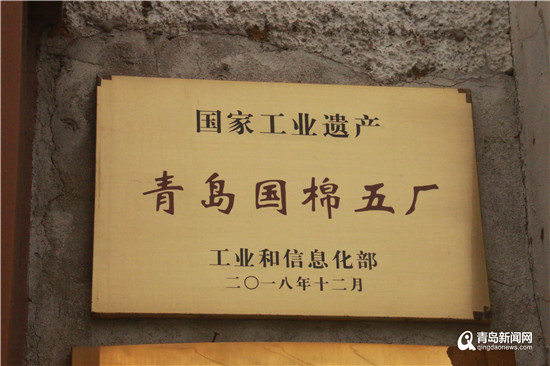 国家工业遗产
青岛国棉五厂
工业和信息化部
二〇一八年十二月
青岛新闻网
qingdaonews.com